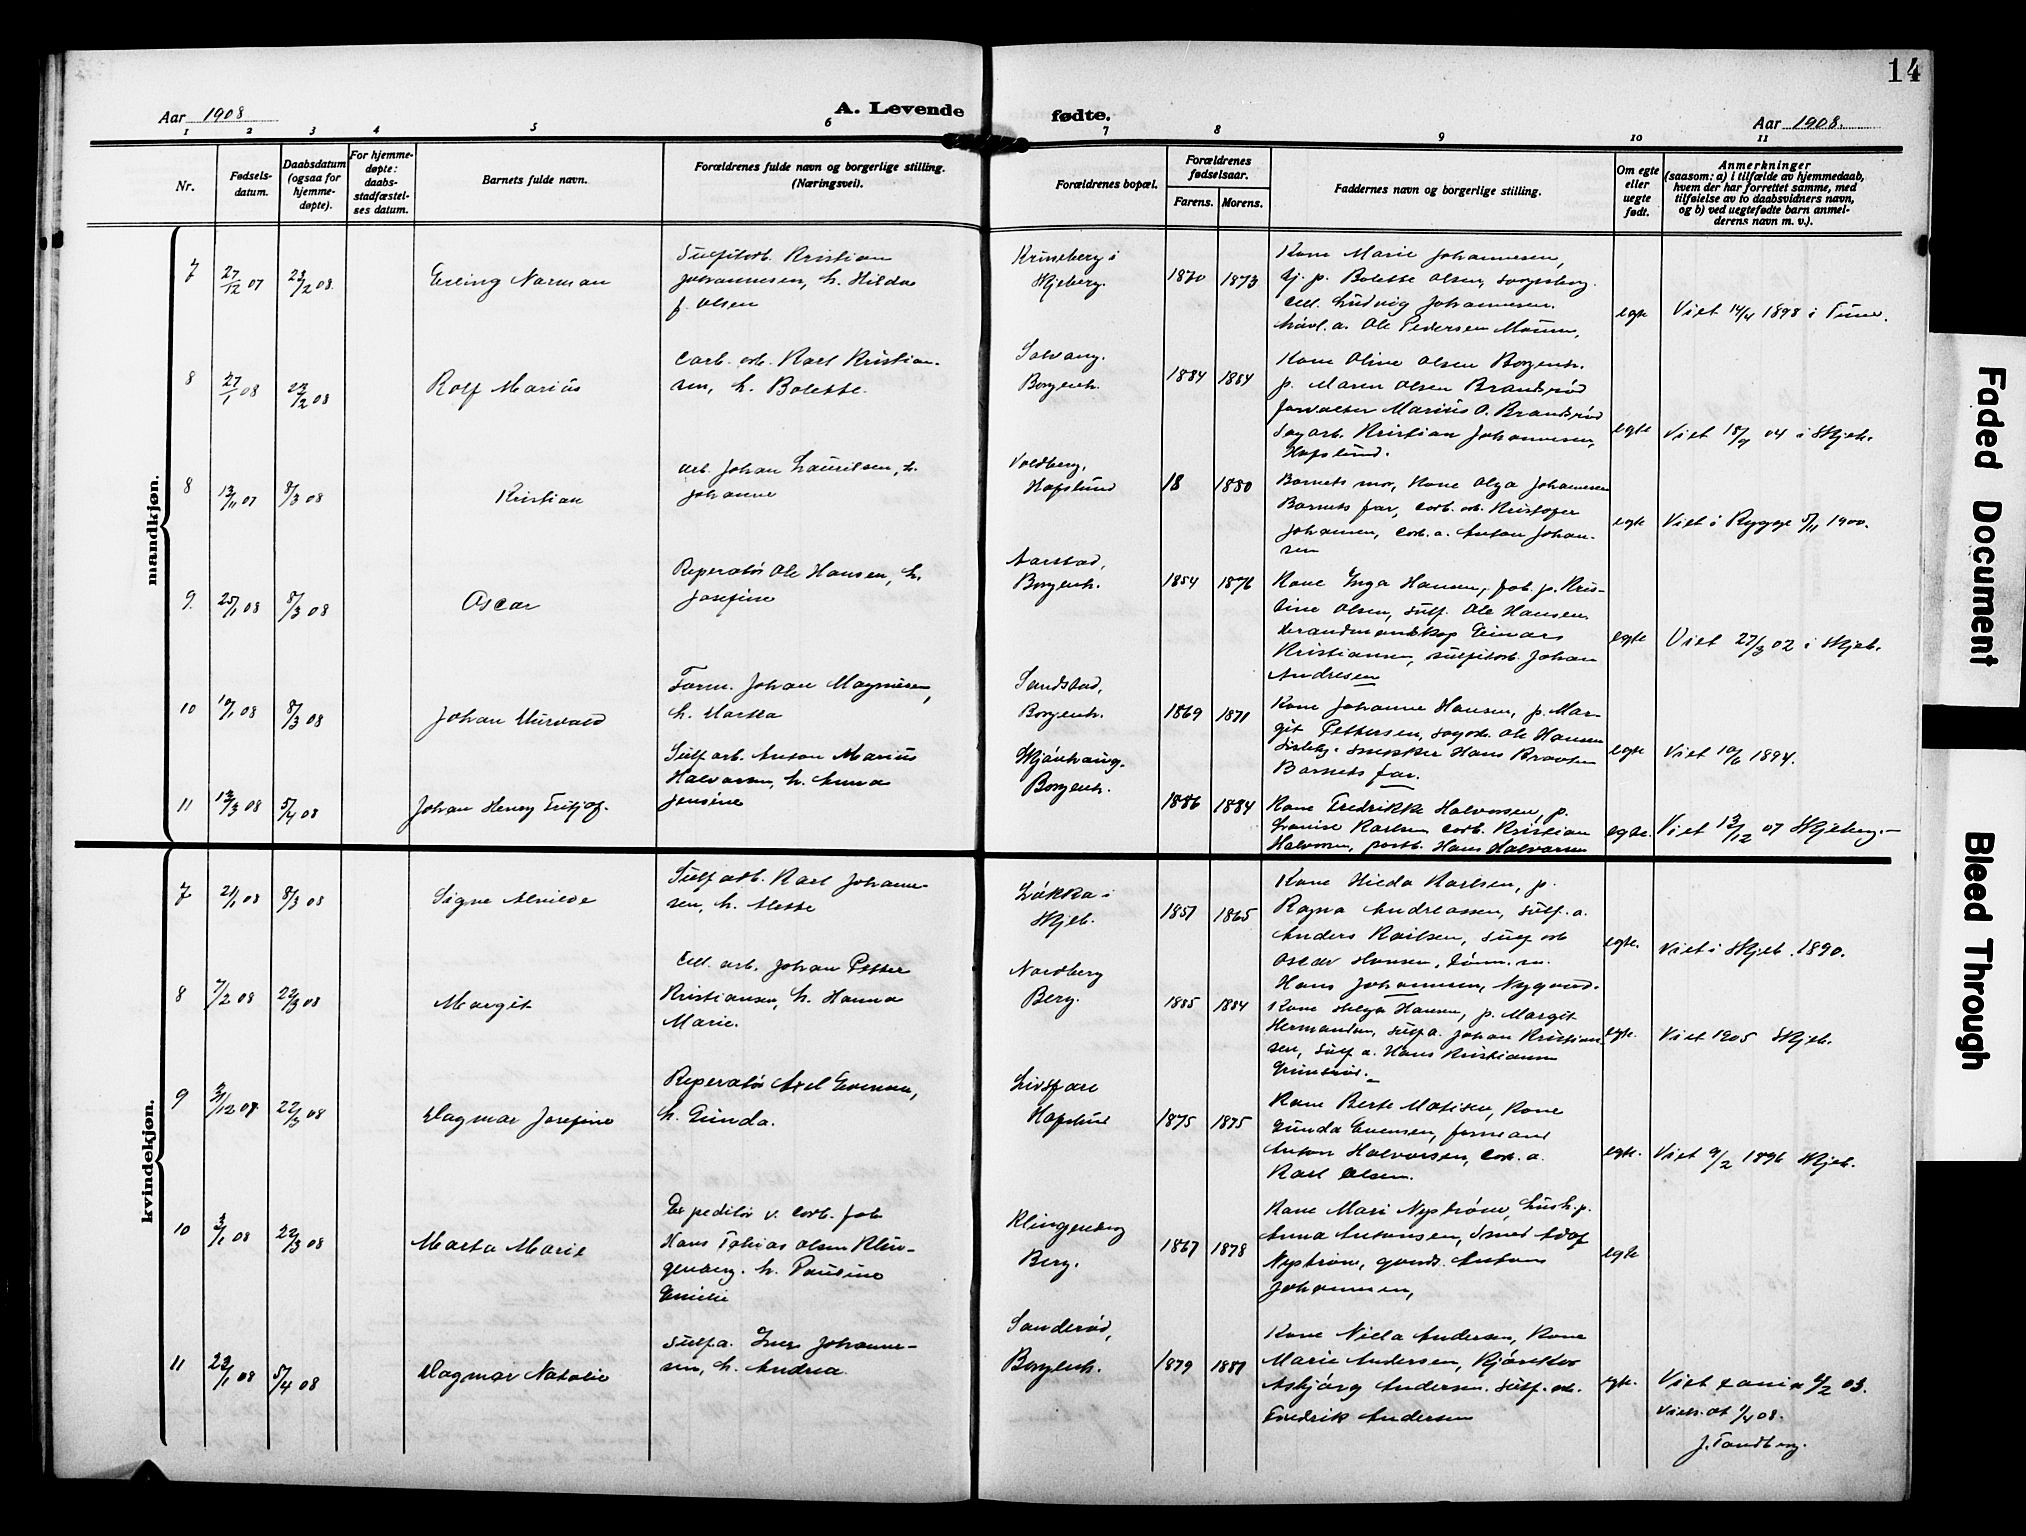 14
Aar 1908
A. Levende
fødte.
Aar 1908.
1 2 3 4 5 6 7 8 9 10 11
Nr.
Fødsels-
datum.
Daabsdatum
(ogsaa for
hjemme-
døpte).
For hjemme-
døpte:
daabs-
stadfæstel-
ses datum.
Barnets fulde navn.
Forældrenes fulde navn og borgerlige stilling.
(Næringsvei).
Forældrenes bopæl.
Forældrenes
fødselsaar.
Farens. Morens.
Faddernes navn og borgerlige stilling.
Om egte
eller
uegte
født.
Anmerkninger
(saasom: a) i tilfælde av hjemmedaab,
hvem der har forrettet samme, med
tilføielse av to daabsvidners navn,
og b) ved uegtefødte barn anmel-
derens navn m. v.).
mandkjøn.
7 27/12 07 23/2 08
Erling Norman
Sulfitarb. Kristian
Johannessen, h. Hilda
f. Olsen
Krineberg i
Skjeberg.
1870 1873
Kone Marie Johannesen,
tj. p. Bolette Olsen, Sarpsborg.
Cell. Ludvig Johannesen.
Ole Pedersen Moum,
egte
Viet 14/4 1898 i Tune.
8 27/1 08 23/2 08
Rolf Marius
Carb. arb. Karl Kristian-
sen, h. Bolette.
Solvang.
Borgenh.
1884 1884
Kone Oline Olsen Borgenh.
p. Maren Olsen Brandsrød
Forvalter Marius O. Brandsrød
Sagarb. Kristian Johannesen,
Hafslund.
egte
Viet 18/9 04 i Skjeb.
8 13/11 07 8/3 08
Kristian
arb. Johan Lauritsen, h.
Johanne
Voldberg,
Hafslund
18 1880
Barnets mor, Kone Olga Johannesen
Barnets far, carb. arb. Kristofer
Johansen, Carb. a. Anton Johan-
sen
egte
Viet i Rygge 5/11 1900.
9. 25/1 08 8/3 08
Oscar
Reperatør Ole Hansen, h.
Josefine
Aarstad,
Borgenh.
1854 1876
Kone Inga Hansen, fab. p. Kris-
tine Olsen, sulf. Ole Hansen
brandmandskap Einar
Kristiansen, sulfitarb. Johan
Andresen
egte
Viet 27/3 02 i Skjeb.
10 19/1 08 8/3 08
Johan
Form. Johan Magnussen,
h. Marta
Sandstad,
Borgenh.
1869 1871
Kone Johanne Hansen, p. Mar-
git Pettersen, sagarb. Ole Hansen
snekker Hans Braaten
Barnets far.
egte
Viet 10/6 1894.
11 13/3 08 5/4 08
Johan Henry Fritjof.
Sulfarb. Anton Marius
Halvorsen, h. Anna
Jensine
Skjønhaug.
Borgenh.
1886 1884
Kone Fredrikke Halvorsen, p.
Lovise Karlsen carb. Kristian
Halvorsen, postb. Hans Halvorsen
egte.
Viet 13/12 07 Skjeberg.
kvindekjøn.
7 21/1 08 8/3 08
Signe Alvilde
Sulfarb. Karl Johanne-
sen, h. Alette
Løkka i
Skjeb.
1857 1865
Kone Hilda Karlsen, p.
Ragna Andreassen, sulf. a.
Anders Karlsen, sulf. arb
Oscar Hansen, tømm. m.
Hans Johannesen, Nygaard.
egte.
Viet i Skjeb. 1890.
8 7/2 08 22/3 08
Margit
Cell. arb. Johan Petter
Kristiansen, h. Hanna
Marie.
Nordberg
Berg.
1885 1884
Kone Helga Hansen, p. Margit
Hermansen, sulf a. Johan Kristian-
sen, sulf a. Hans Kristiansen
egte.
Viet 1905 Skjeb.
9 31/12 07 22/3 08
Dagmar Josefine
Reperatør Axel Evensen,
h. Gunda.
Hafslund
1875 1875
Kone Berte Matisen, Kone
Gunda Evensen, formand
Anton Halvorsen, Carb. a.
Karl Olsen.
egte.
Viet 9/2 1896 Skjeb.
10 3/1 08 22/3 08
Marta Marie
Expeditør v. Carb. fab
Hans Tobias Olsen Klin-
genberg. h. Pauline
Emilie
Klingenberg
Berg.
1867 1878
Kone Mari Nystrøm, hush. p.
Anna Antonsen, Smed Adolf
Nystrøm, gaardb. Anton
Johannesen,
egte
11 23/1 08 5/4 08
Dagmar Natalie
Sulf a. Iver Johanne-
sen, h. Andrea.
Sanderød,
Borgenh.
1879 1881
Kone Nicla Andersen, Kone
Marie Andersen, Kjøreskar
Asbjørg Andersen. sulf. arb.
Fredrik Andersen
egte.
Viet 03.
att 1/4 08.
J. Tandberg.
Faded Document
Bleed Through